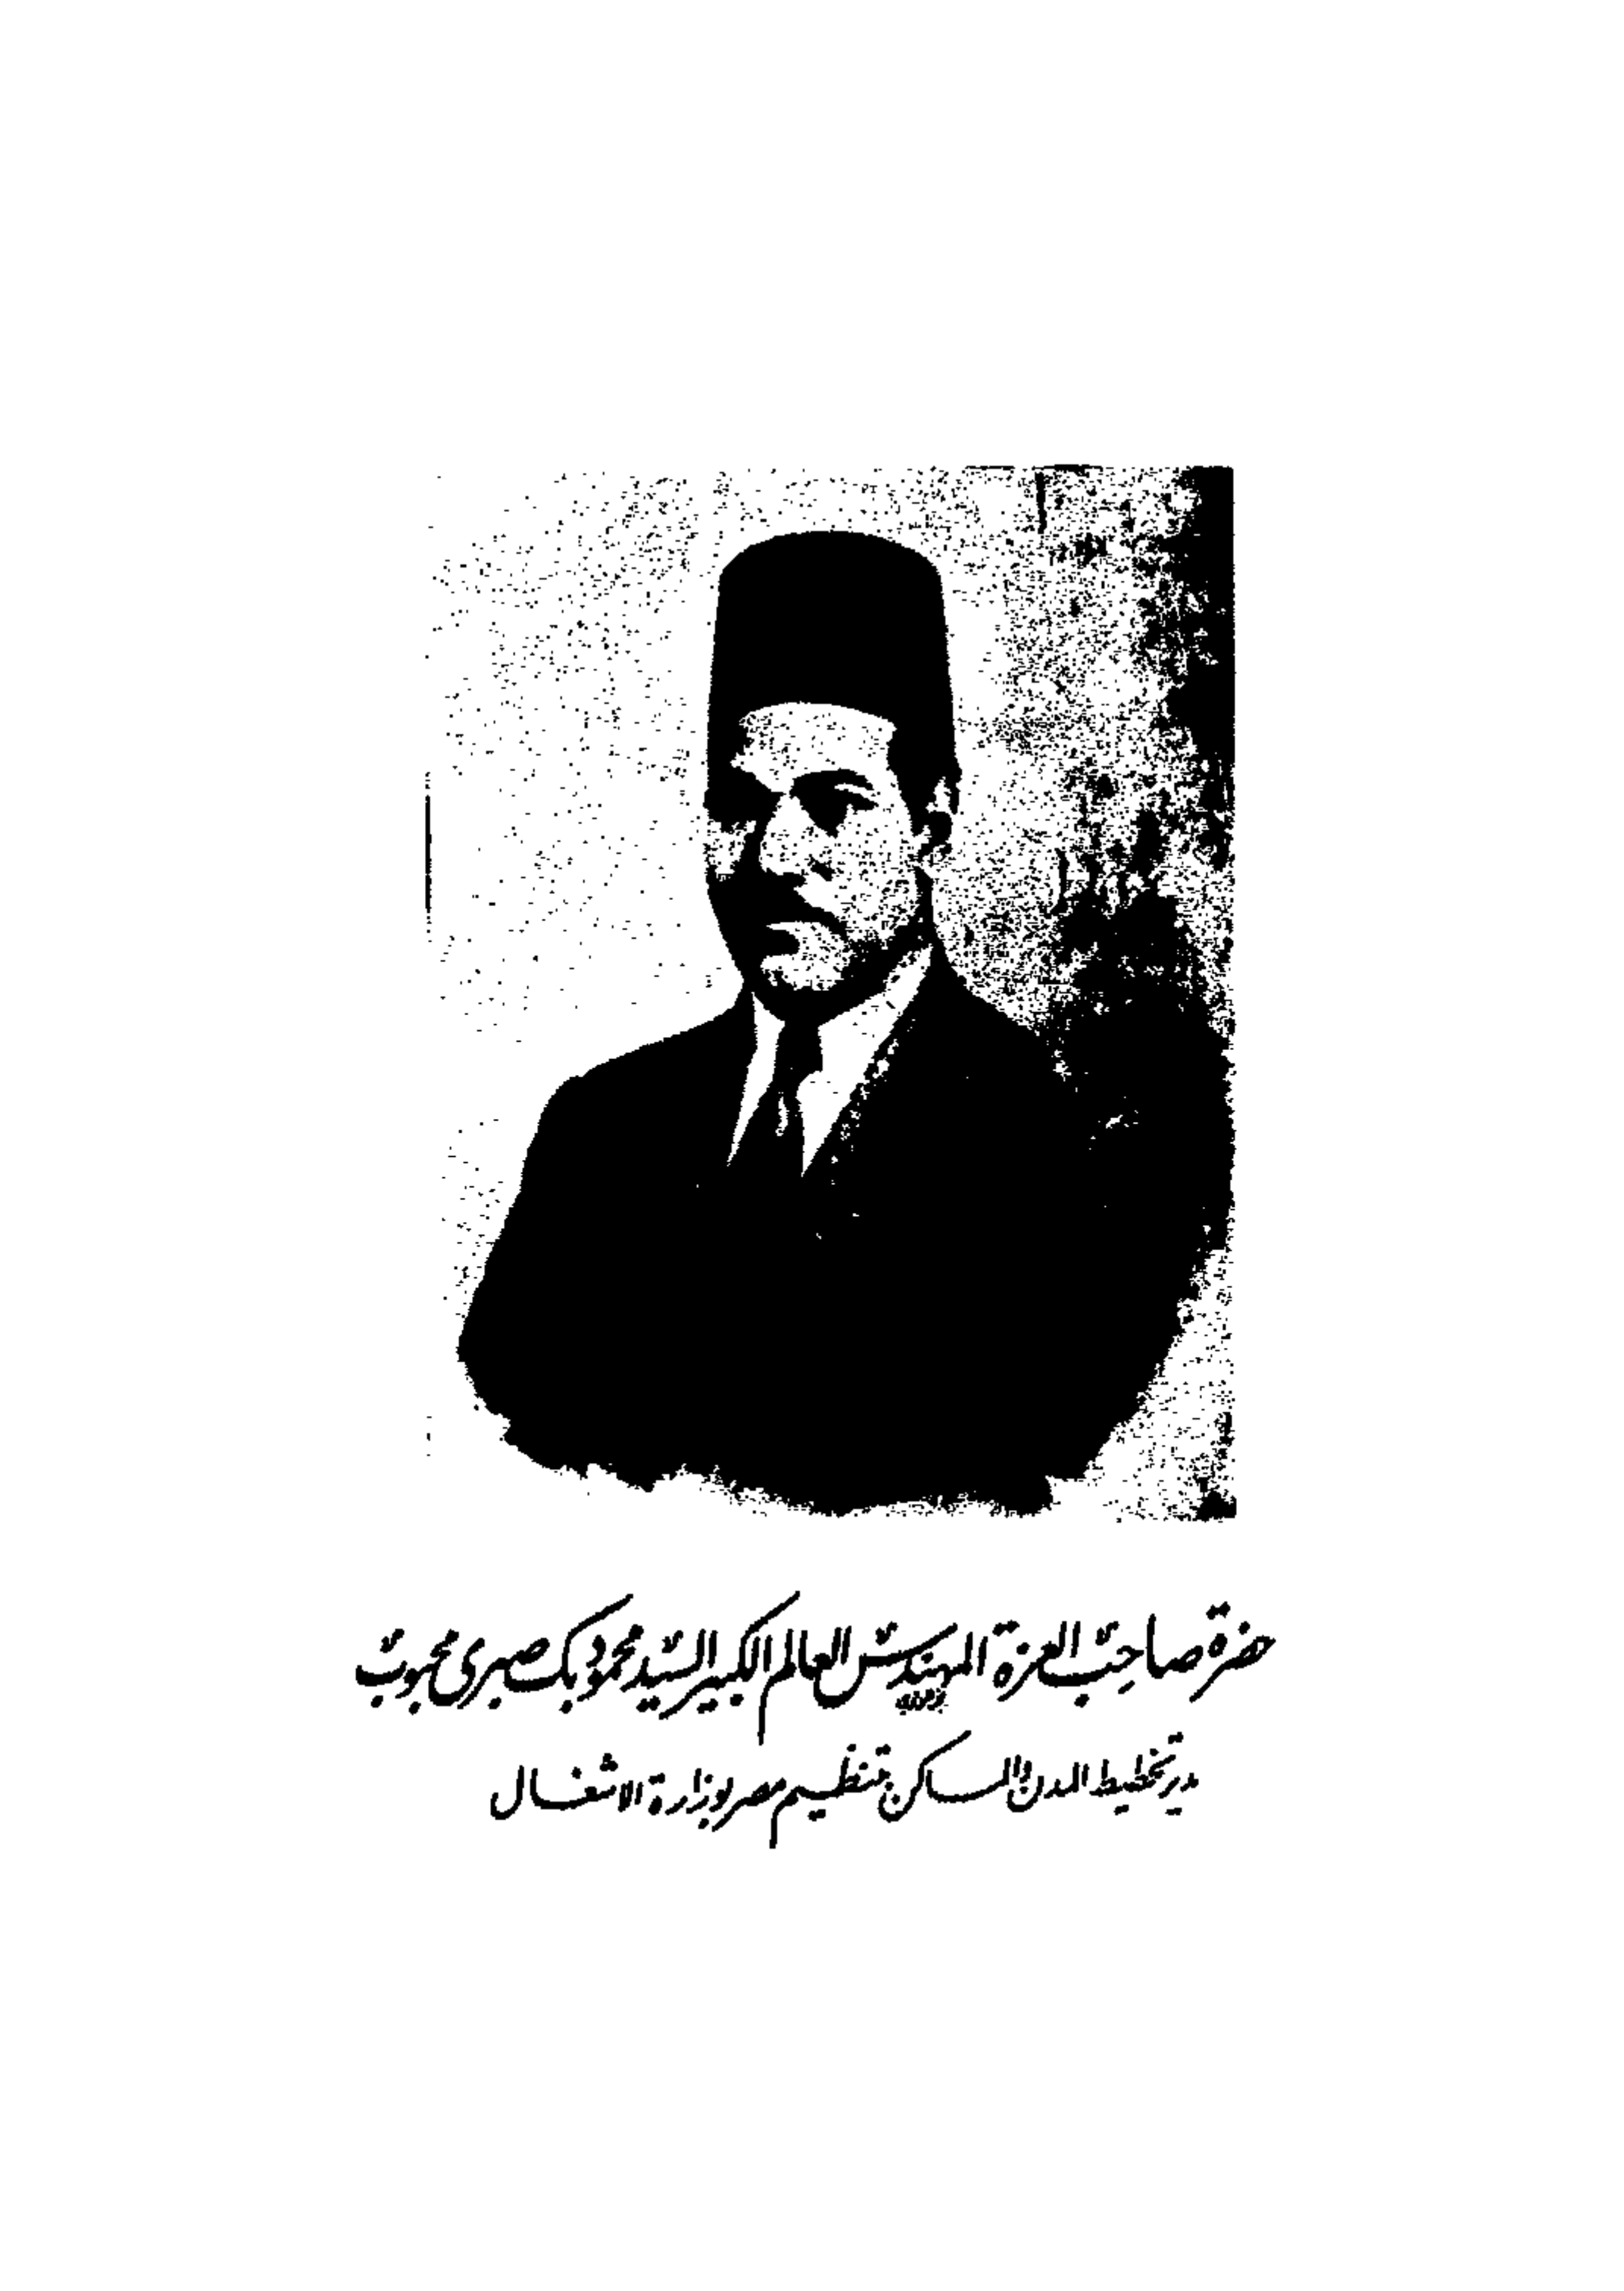 حضرة صاحب العزة المهندس العالم الكبير السيد محمود بك صبرى محبوب
مدير تخطيط المدن والمساكن بتنظيم مصر بوزارة الاشغال